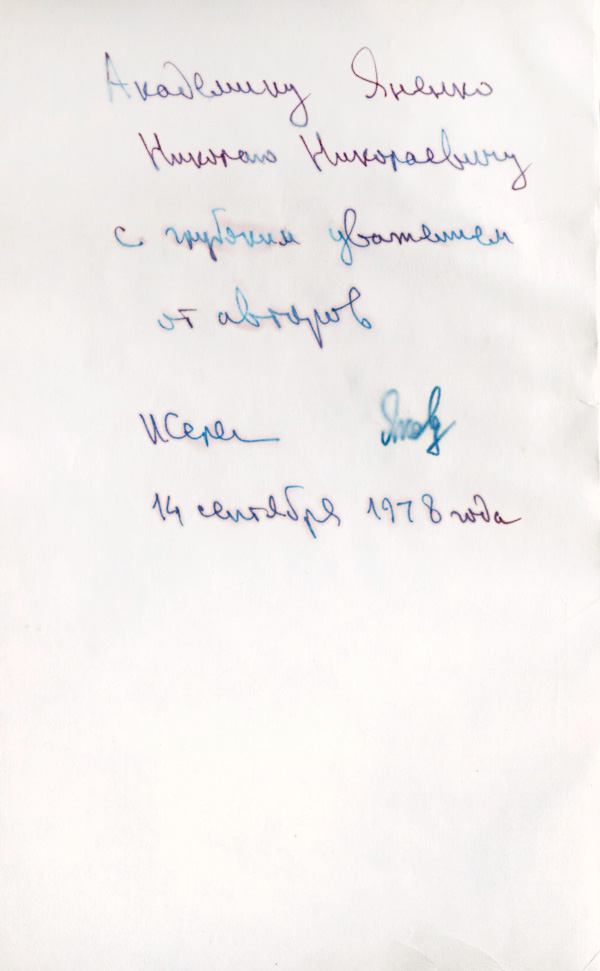 Академику Яненко
Николаю Николаевичу
с глубоким уважением
от авторов
14 сентября 1978 года